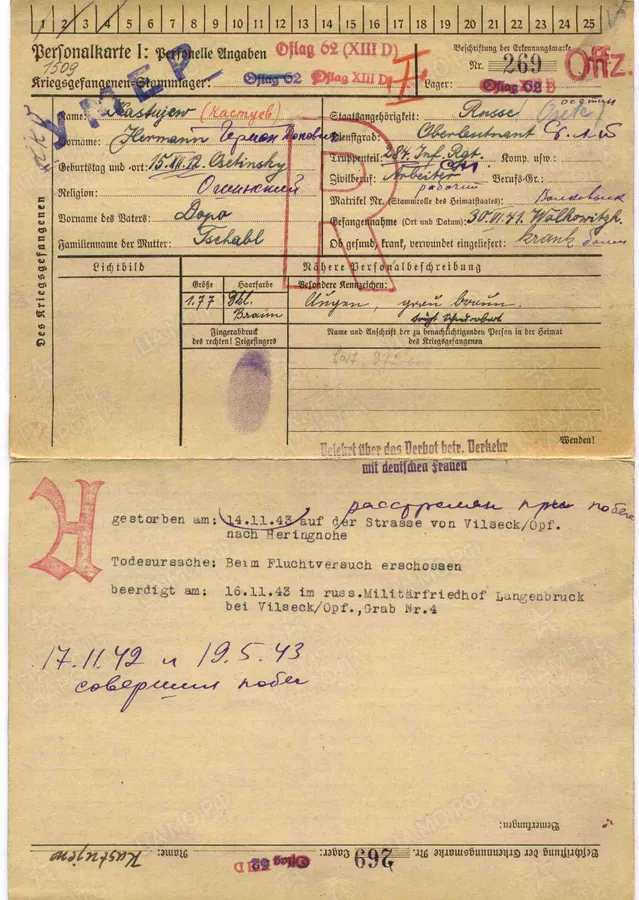 1 2 3 4 5 6 7 8 9 10 11 12 13 14 15 16 17 18 19 20 21 22 23 24 25
Personalkarte I: Personelle Angaben Oflag 62 (XIII D) Beschriftung der Erkennungsmarke
1509 Nr. 269 Offz.
Kriegsgefangenen-Stammlager: Oflag 62 Oflag XIII D Lager: Oflag 62
УМЕР
II
R
Des Kriegsgefangenen
Name: Kastujew (Кастуев) Staatsangehörigkeit: Russe осетин
Vorname: Hermann Герман Dienstgrad: Oberleutnant
Geburtstag und -ort: 15. Osetinsky Truppenteil: 284. Inf. Rgt. Komp. usw.:
Zivilberuf: Arbeiter Berufs-Gr.:
рабочий
Religion: Matrikel Nr. (Stammrolle des Heimatstaates): Волковыск
Vorname des Vaters: Dopo Gefangennahme (Ort und Datum): 30.VI.41. Walkowitzk.
Familienname der Mutter: Tschabl Ob gesund, krank, verwundet eingeliefert: krank болен
Lichtbild Nähere Personalbeschreibung
Größe Haarfarbe Besondere Kennzeichen:
1.77 dkl. Braun Augen, grau braun.
Fingerabdruck
des rechten! Zeigefingers
Name und Anschrift der zu benachrichtigenden Person in der Heimat
des Kriegsgefangenen
Wenden!
Belehrt über das Verbot betr. Verkehr
mit deutschen Frauen
расстрелян при побеге
gestorben am: 14.11.43 auf der Strasse von Vilseck/Opf.
nach Heringnohe
Todesursache: Beim Fluchtversuch erschossen
beerdigt am: 16.11.43 im russ.Militärfriedhof Langenbruck
bei Vilseck/Opf.,Grab Nr.4
17.11.42 и 19.5.43
совершил побег
Bemerkungen:
Beschriftung der Erkennungsmarke Nr. 269 Lager: Oflag 62 Name: Kastujew